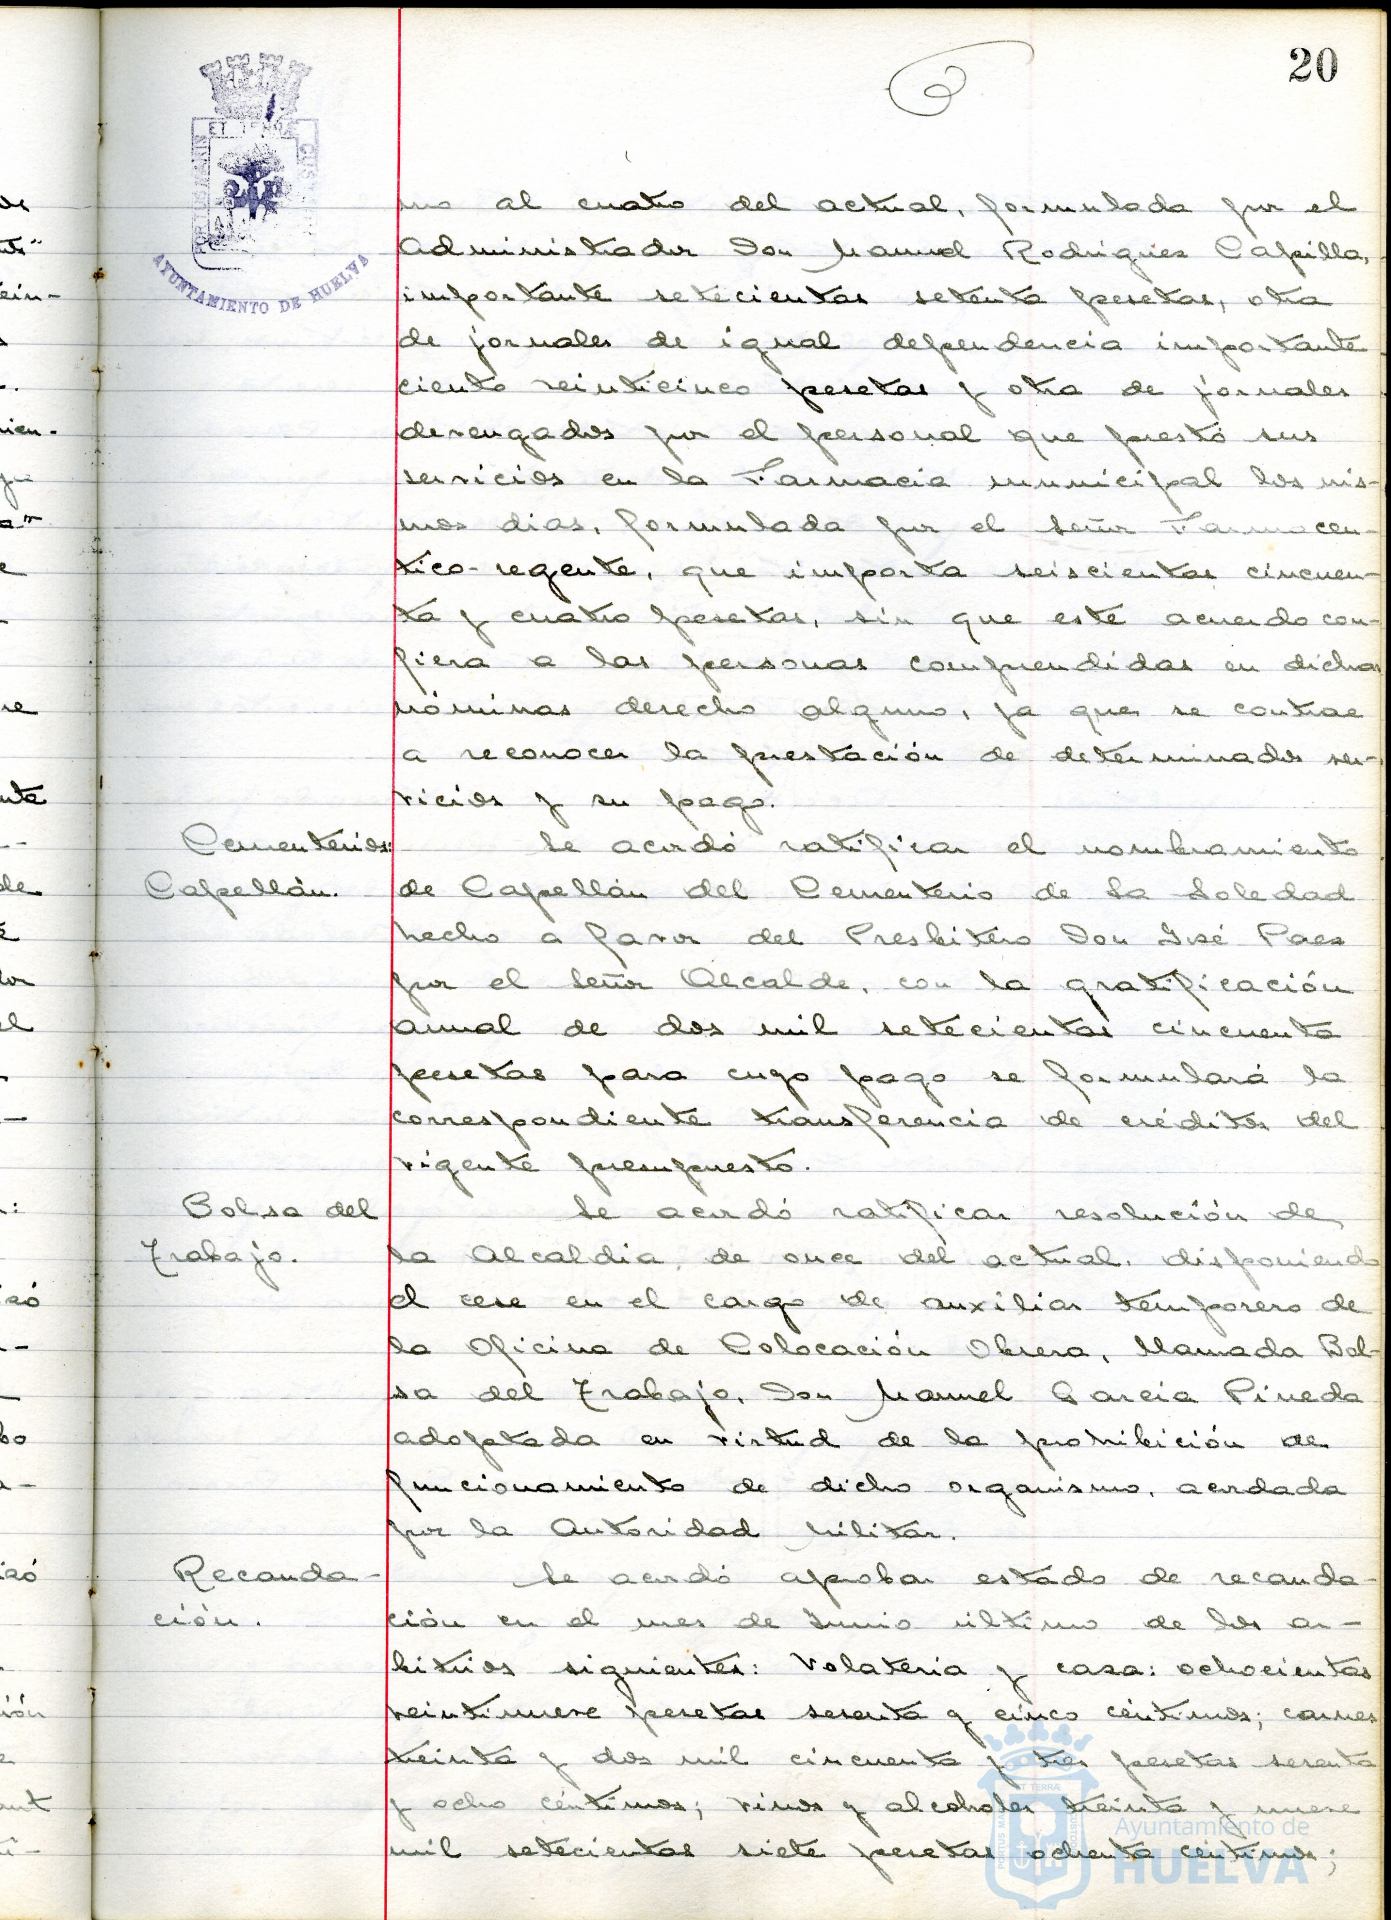 20
ET TERRÆ
AYUNTAMIENTO DE HUELVA
mo al cuatro del actual, formulada por el
Administrador Don Manuel Rodriguez Capilla,
importante setecientas setenta pesetas, otra
de jornales de igual dependencia importante
ciento veinticinco pesetas y otra de jornales
devengados por el personal que prestó sus
servicios en la Farmacia municipal los mis-
mos dias, formulada por el señor Farmaceu-
tico-regente, que importa seiscientas cincuen-
ta y cuatro pesetas, sin que este acuerdo con-
fiera a las personas comprendidas en dichas
nóminas derecho alguno, ya que se contrae
a reconocer la prestación de determinados ser-
vicios y su pago.
Cementerios: Se acordó ratificar el nombramiento
Capellán. de Capellán del Cementerio de La Soledad
hecho a favor del Presbítero Don José Paez
por el Señor Alcalde, con la gratificación
anual de dos mil setecientas cincuenta
pesetas para cuyo pago se formulará la
correspondiente transferencia de créditos del
vigente presupuesto.
Bolsa del Se acordó ratificar resolución de
Trabajo. la Alcaldia, de once del actual, disponiendo
el cese en el cargo de auxiliar temporero de
la Oficina de Colocación Obrera, llamada Bol-
sa del Trabajo, Don Manuel Garcia Pineda
adoptada en virtud de la prohibición de
funcionamiento de dicho organismo, acordada
por la Autoridad Militar.
Recauda- Se acordó aprobar estado de recauda-
ción. ción en el mes de Junio último de los ar-
bitrios siguientes: Volateria y caza: ochocientas
veintinueve pesetas sesenta y cinco céntimos; carnes
treinta y dos mil cincuenta y tres pesetas sesenta
y ocho céntimos; vinos y alcoholes treinta y nueve
mil setecientas siete pesetas ochenta céntimos;
Ayuntamiento de
HUELVA